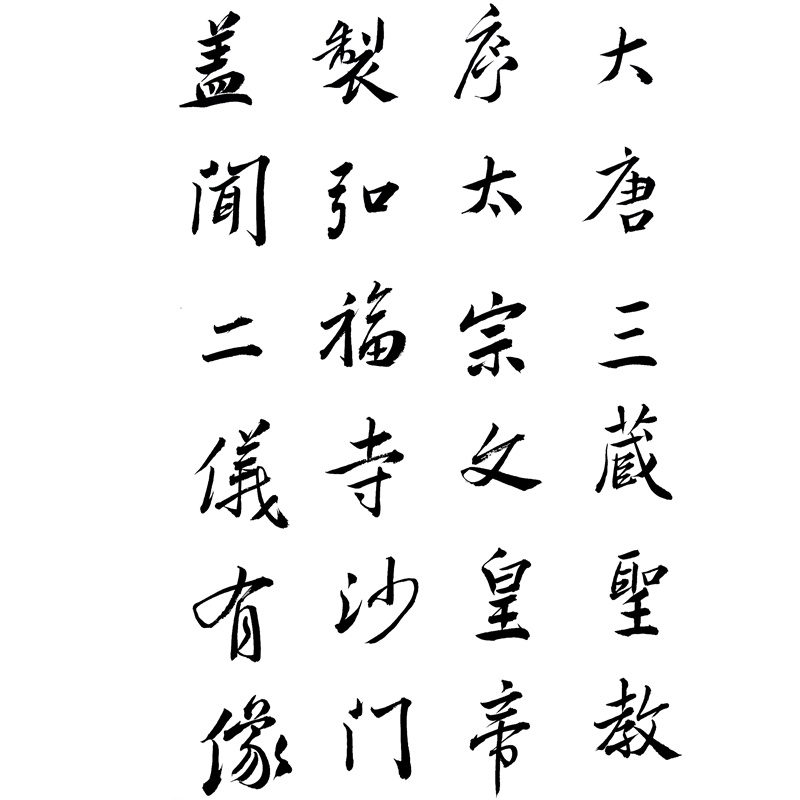 大唐三藏聖教
序太宗文皇帝
製弘福寺沙门
盖聞二儀有像